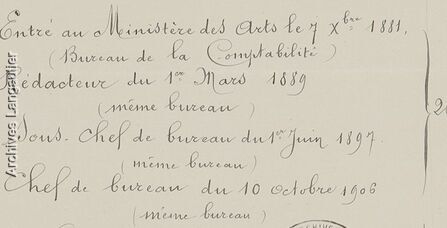 Entré au Ministère des Arts le 7 Xbre 1881,
(Bureau de la Comptabilité)
Rédacteur du 1er Mars 1889
(même bureau)
Sous-Chef de bureau du 1er Juin 1897.
(même bureau)
Chef de bureau du 10 octobre 1906
(même bureau)
Archives Largentier